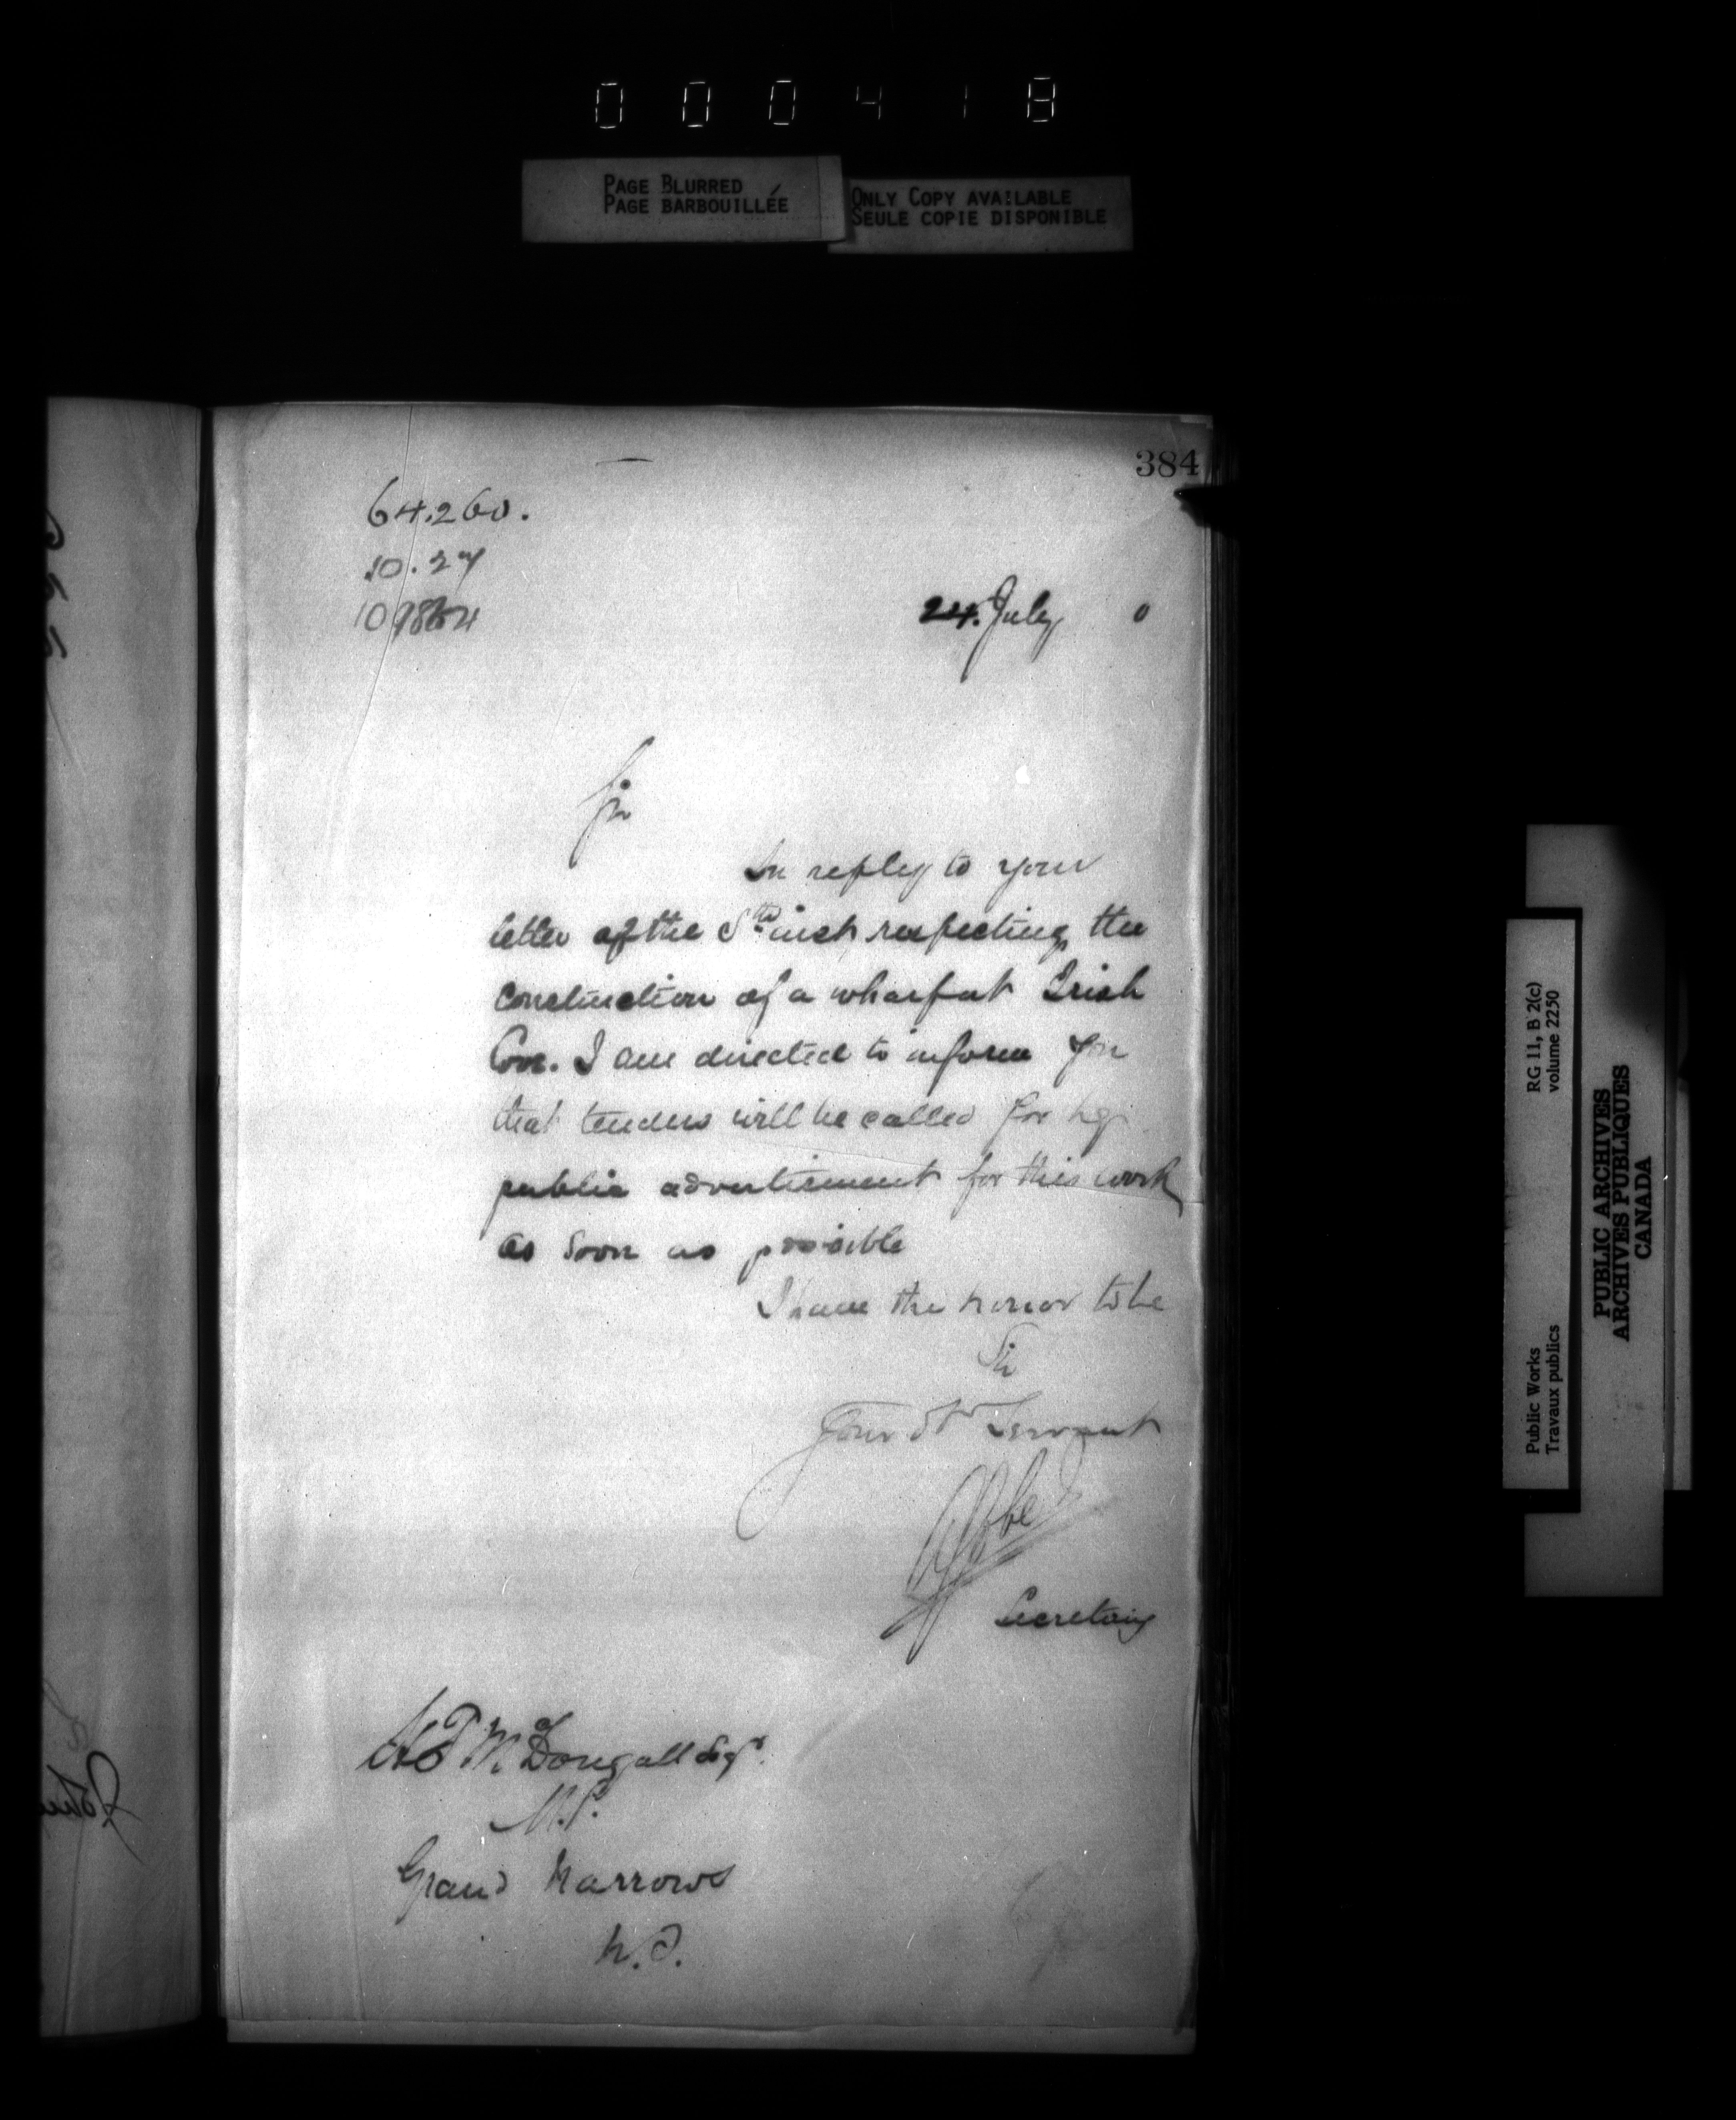 000418
PAGE BLURRED
PAGE BARBOUILLÉE
ONLY COPY AVAILABLE
SEULE COPIE DISPONIBLE
384
64.260.
10.27
24. July 0
Sir
In reply to your
letter of the 5th inst, respecting the
construction of a wharf at Irish
Cove. I am directed to inform you
that tenders will be called for by
public advertisement for this work
as soon as possible
I have the honor to be
Sir
Your Ob Servant
Secretary
H F McDougall Esqr.
M.P.
Grand Narrows
N.S.
Public Works
Travaux publics
RG 11, B 2(c)
volume 2250
PUBLIC ARCHIVES
ARCHIVES PUBLIQUES
CANADA